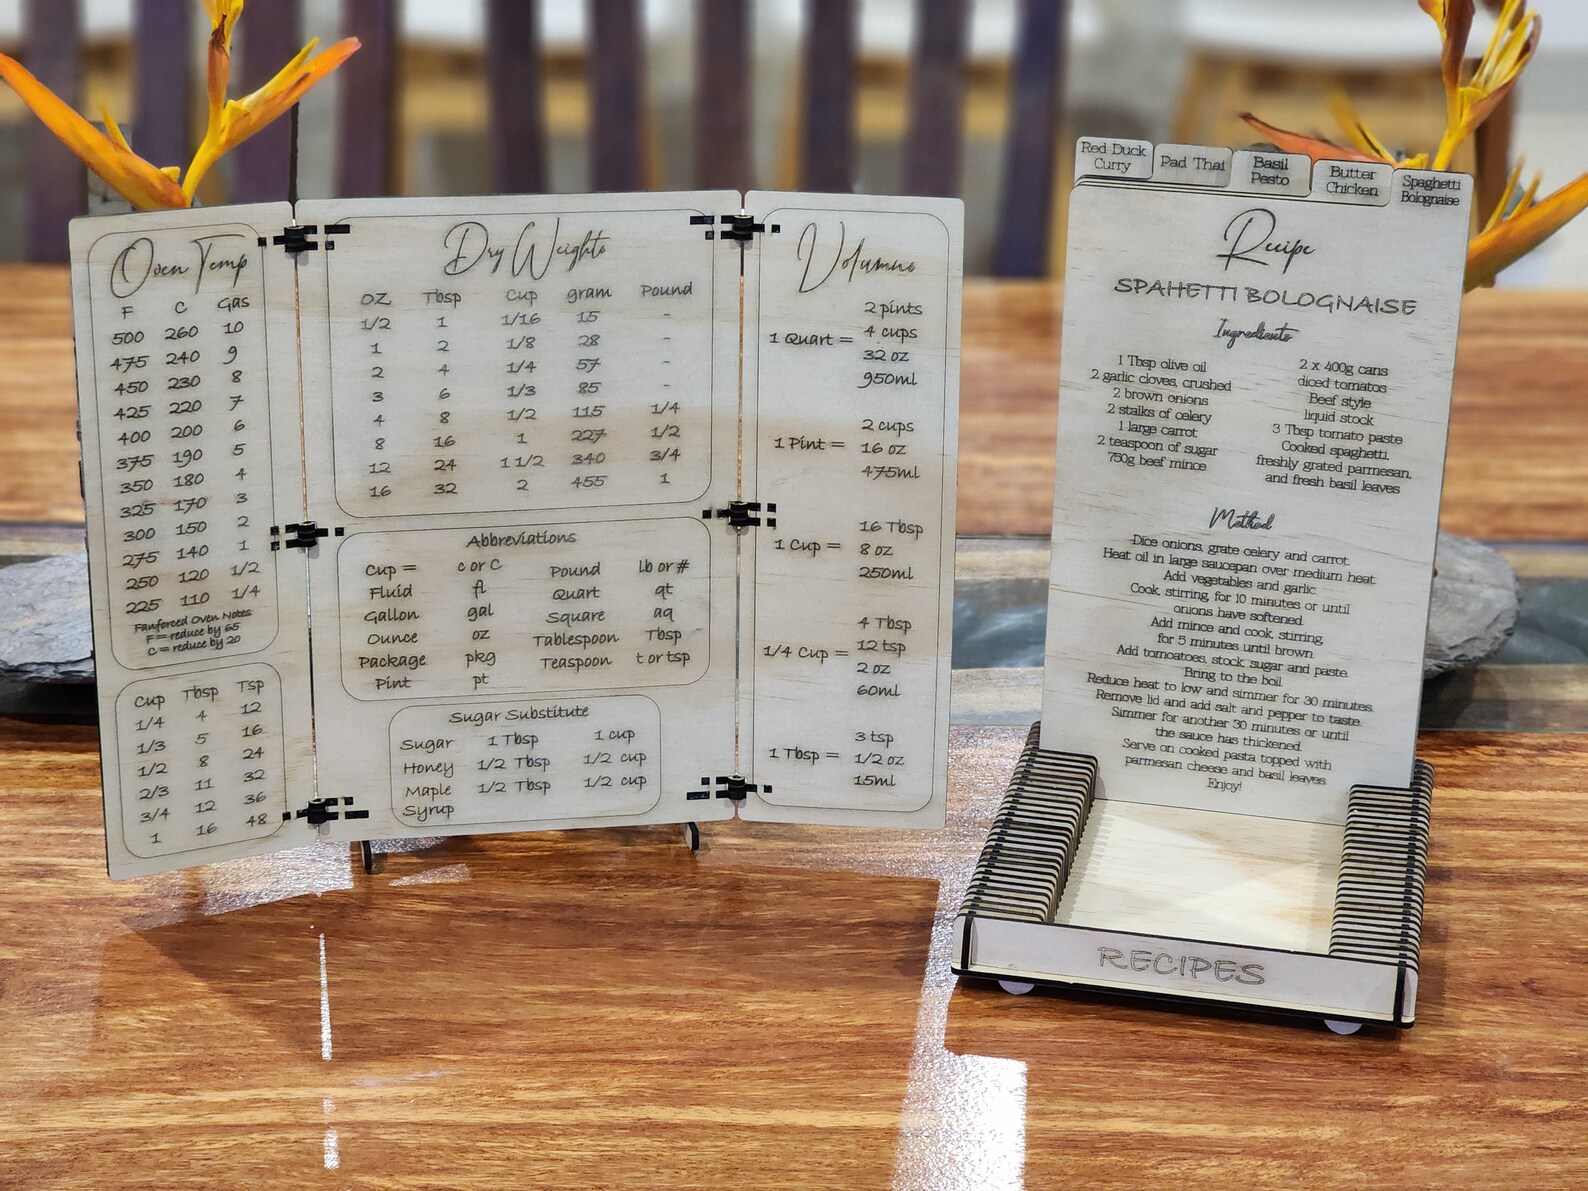 Oven Temp
F C Gas
500 260 10
475 240 9
450 230 8
425 220 7
400 200 6
375 190 5
350 180 4
325 170 3
300 150 2
275 140 1
250 120 1/2
225 110 1/4
Fanforced Oven Notes
F = reduce by 65
C = reduce by 20
Cup Tbsp Tsp
1/4 4 12
1/3 5 16
1/2 8 24
2/3 11 32
3/4 12 36
1 16 48
Dry Weights
OZ Tbsp Cup gram Pound
1/2 1 1/16 15 -
1 2 1/8 28 -
2 4 1/4 57 -
3 6 1/3 85 -
4 8 1/2 115 1/4
8 16 1 227 1/2
12 24 1 1/2 340 3/4
16 32 2 455 1
Abbreviations
Cup = c or C Pound lb or #
Fluid fl Quart qt
Gallon gal Square aq
Ounce oz Tablespoon Tbsp
Package pkg Teaspoon t or tsp
Pint pt
Sugar Substitute
Sugar 1 Tbsp 1 cup
Honey 1/2 Tbsp 1/2 cup
Maple 1/2 Tbsp 1/2 cup
Syrup
Volumne
2 pints
1 Quart = 4 cups
32 oz
950ml
2 cups
1 Pint = 16 oz
475ml
16 Tbsp
1 Cup = 8 oz
250ml
4 Tbsp
1/4 Cup = 12 tsp
2 oz
60ml
3 tsp
1 Tbsp = 1/2 oz
15ml
Red Duck
Curry
Pad Thai
Basil
Pesto
Butter
Chicken
Spaghetti
Bolognaise
Recipe
SPAHETTI BOLOGNAISE
Ingredients
1 Tbsp olive oil
2 garlic cloves, crushed
2 brown onions
2 stalks of celery
1 large carrot
2 teaspoon of sugar
750g beef mince
2 x 400g cans
diced tomatos
Beef style
liquid stock
3 Tbsp tomato paste
Cooked spaghetti,
freshly grated parmesan,
and fresh basil leaves
Method
Dice onions, grate celery and carrot.
Heat oil in large saucepan over medium heat.
Add vegetables and garlic
Cook, stirring, for 10 minutes or until
onions have softened.
Add mince and cook, stirring,
for 5 minutes until brown.
Add tomoatoes, stock, sugar and paste.
Bring to the boil.
Reduce heat to low and simmer for 30 minutes.
Remove lid and add salt and pepper to taste.
Simmer for another 30 minutes or until
the sauce has thickened.
Serve on cooked pasta topped with
parmesan cheese and basil leaves.
Enjoy!
RECIPES